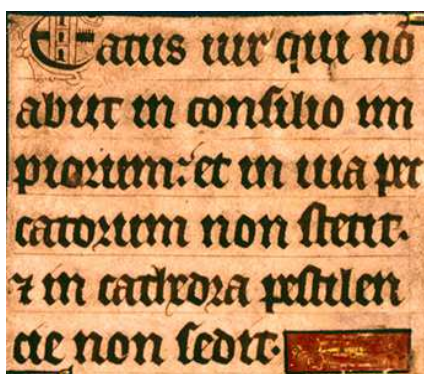 Eatus uir qui nō
abijt in consilio im
piorum: et in uia pec
catorum non stetit.
⁊ in cathedra pestilen
cie non sedit.